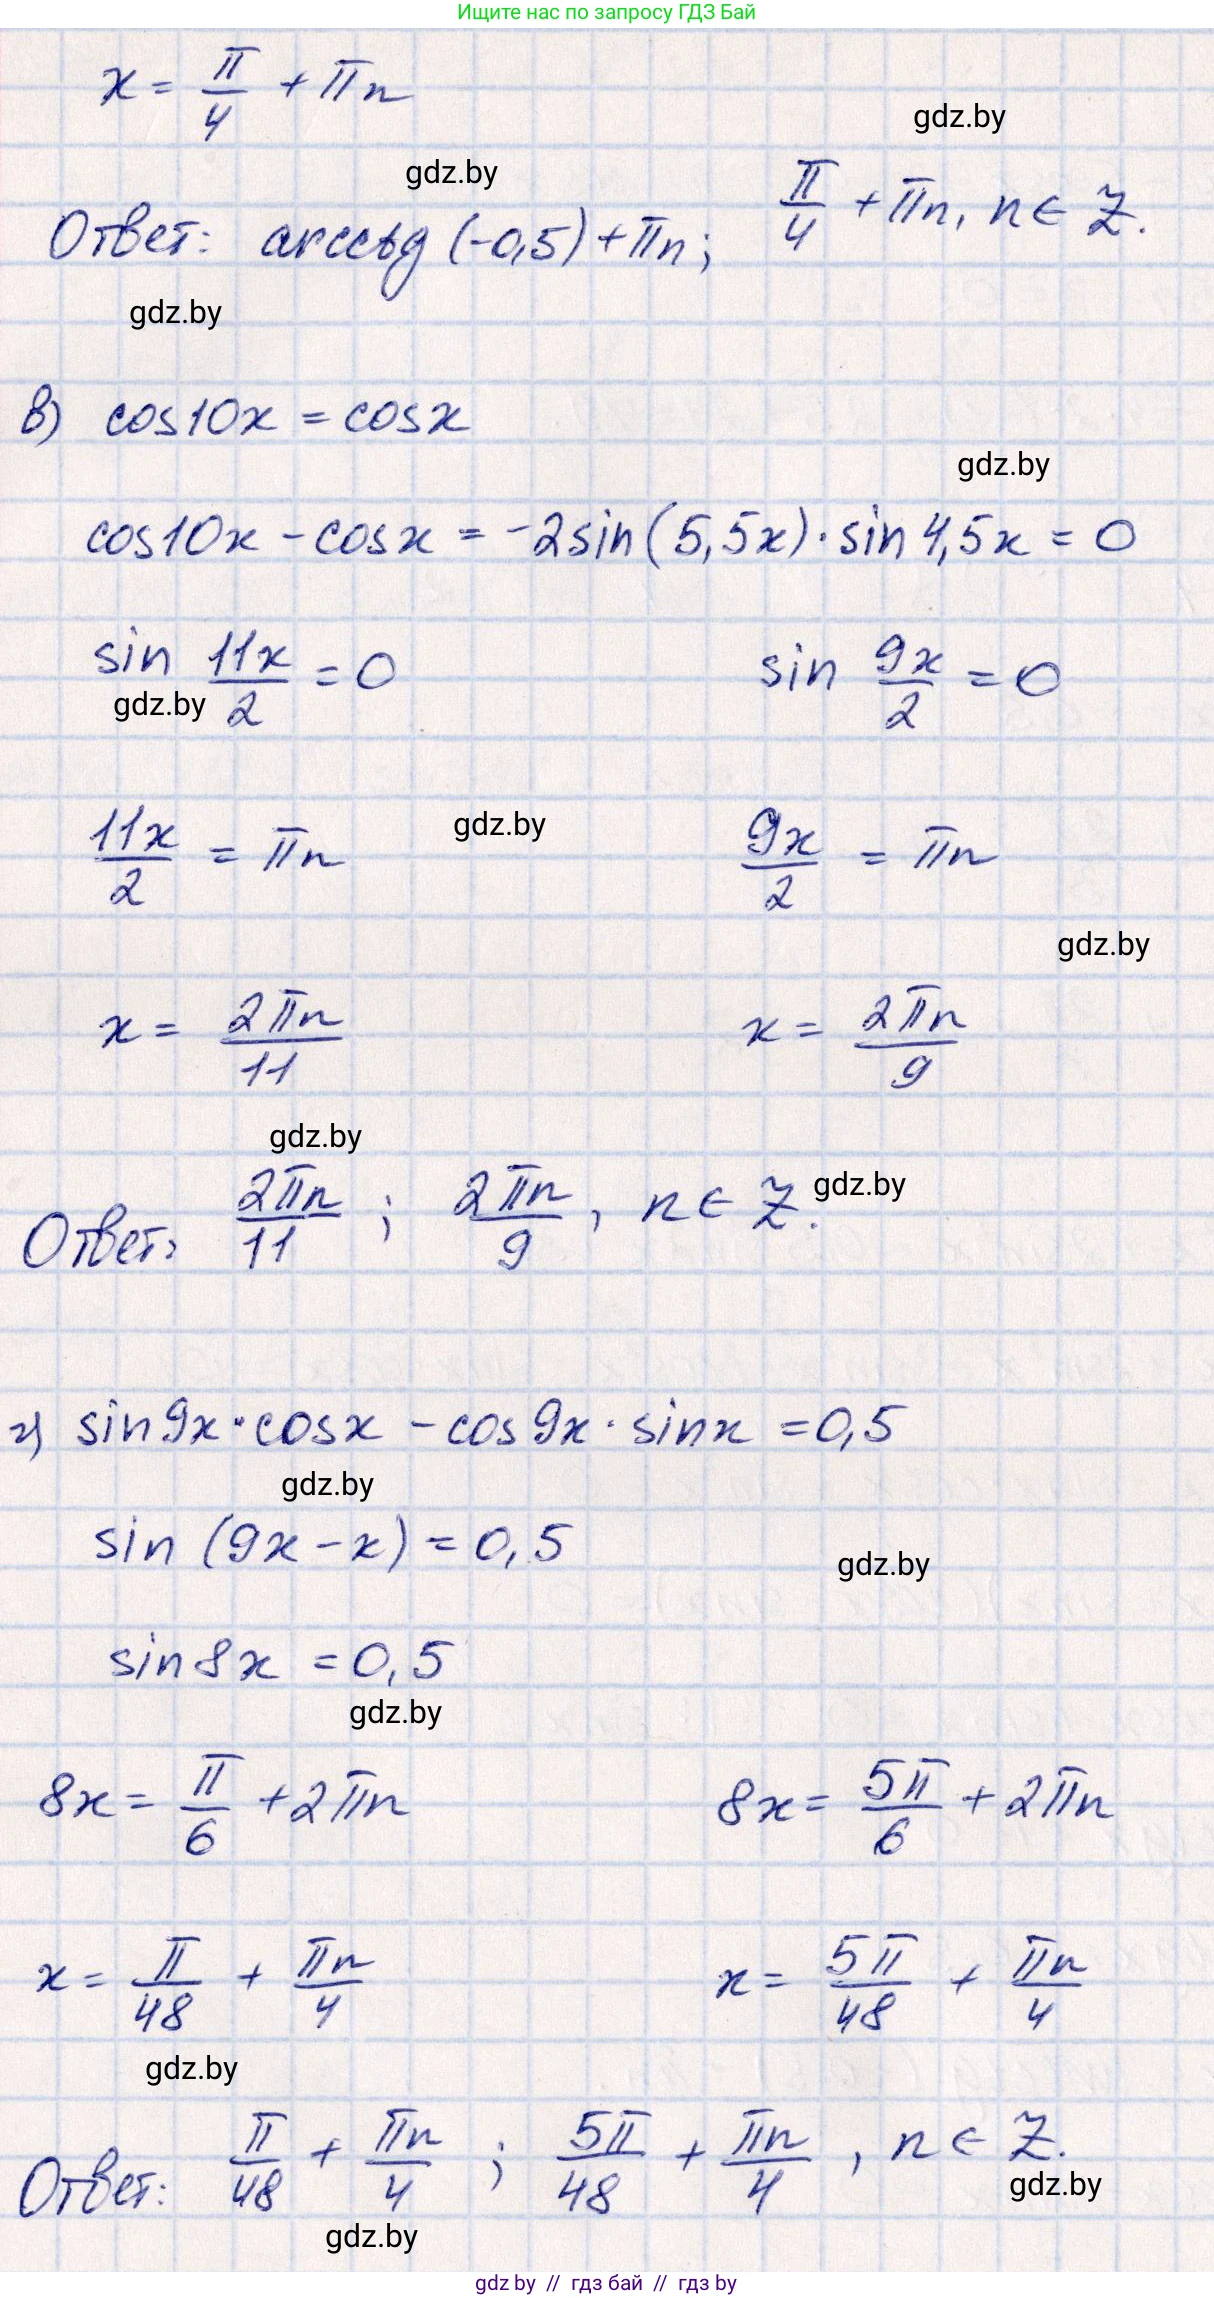 Ищите нас по запросу ГДЗ Бай
x = π/4 + πn
gdz.by
gdz.by
Ответ: arcctg (-0,5) + πn; π/4 + πn, n ∈ Z.
gdz.by
в) cos10x = cosx
gdz.by
cos10x - cosx = -2sin(5,5x)·sin4,5x = 0
sin 11x/2 = 0 sin 9x/2 = 0
gdz.by
11x/2 = πn gdz.by 9x/2 = πn
gdz.by
x = 2πn/11 x = 2πn/9
gdz.by
gdz.by
Ответ: 2πn/11 ; 2πn/9 , n ∈ Z.
г) sin9x·cosx - cos9x·sinx = 0,5
gdz.by
sin (9x - x) = 0,5
gdz.by
sin8x = 0,5
gdz.by
8x = π/6 + 2πn 8x = 5π/6 + 2πn
x = π/48 + πn/4 x = 5π/48 + πn/4
gdz.by
Ответ: π/48 + πn/4 ; 5π/48 + πn/4 , n ∈ Z.
gdz.by
gdz.by
gdz by // гдз бай // gdz by